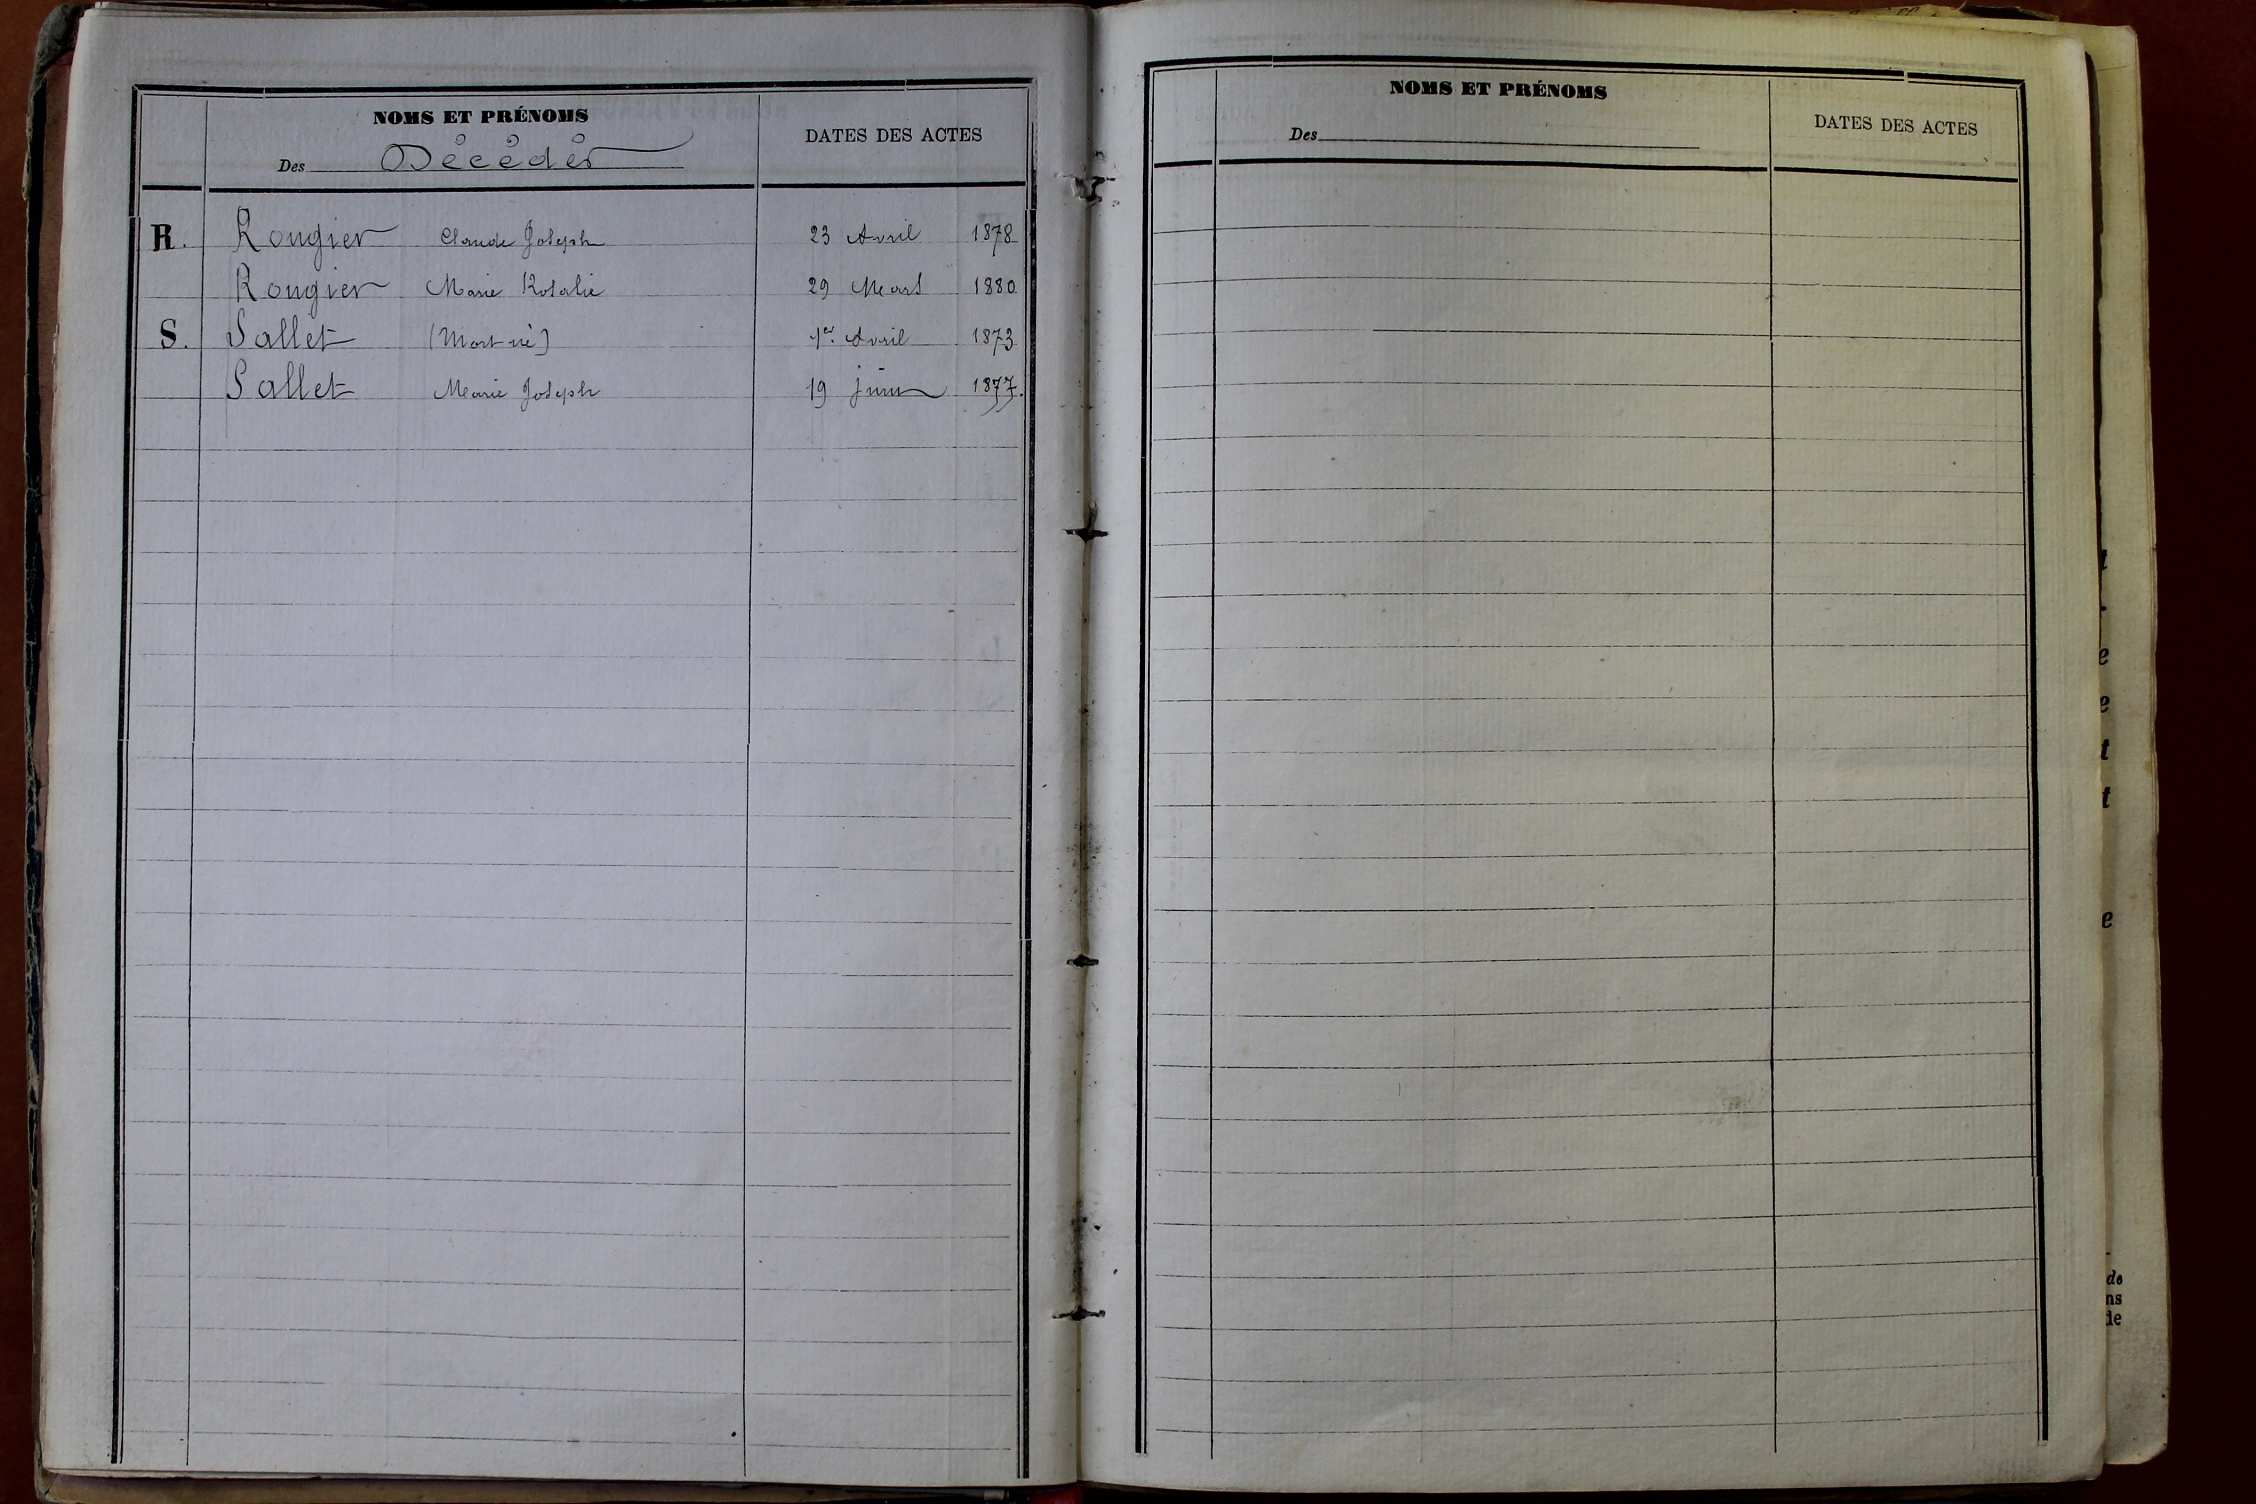 NOMS ET PRÉNOMS
Des Décédés
DATES DES ACTES
R. Rougier Claude Joseph 23 Avril 1878
Rougier Marie Rosalie 29 Mars 1880
S. Sallet (Mort né) 1er Avril 1873
Sallet Marie Joseph 19 juin 1877.
NOMS ET PRÉNOMS
Des
DATES DES ACTES
t
e
e
t
t
e
de
ns
de